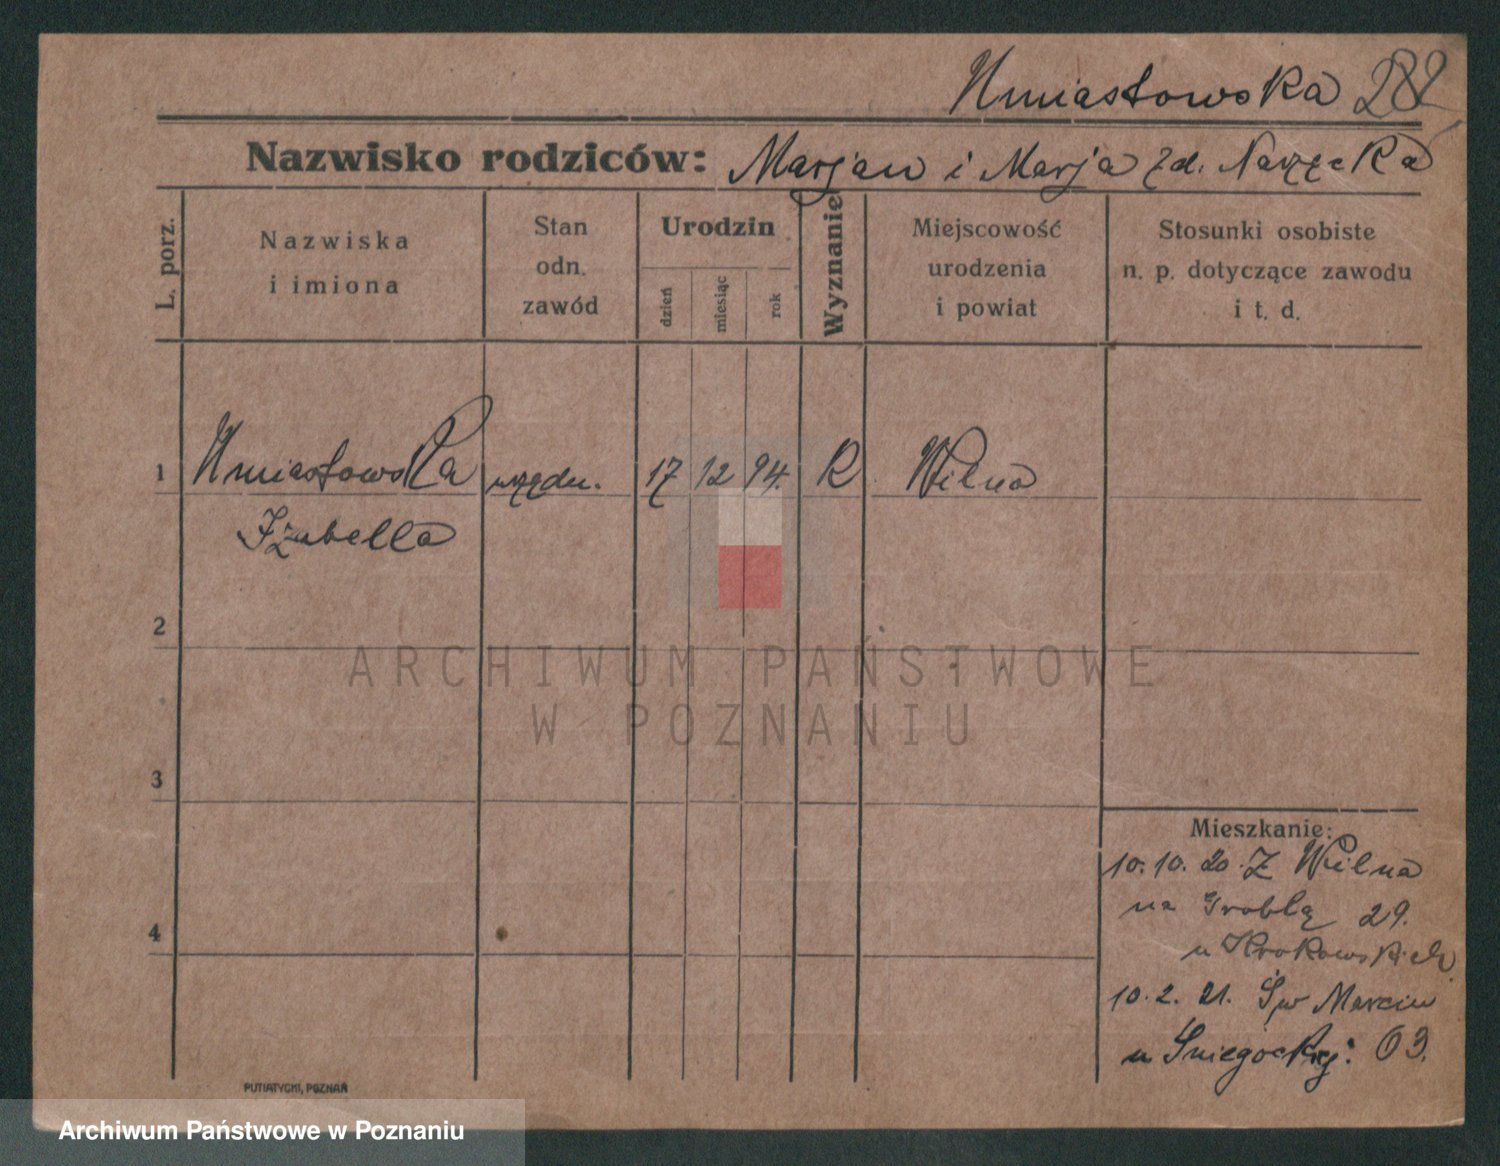 Umiastowska 282
Nazwisko rodziców: Marjan i Marja zd. Narzęcka
L. porz.
Nazwiska
i imiona
Stan
odn.
zawód
Urodzin
dzień
miesiąc
rok
Wyznanie
Miejscowość
urodzenia
i powiat
Stosunki osobiste
n. p. dotyczące zawodu
i t. d.
1 Umiastowska urzędn. 17 12 94. R Wilna
Izabella
2
ARCHIWUM PAŃSTWOWE
W POZNANIU
3
Mieszkanie:
10. 10. 20. Z Wilna
na Groblą 29.
u Krakowskich.
4
10. 2. 21. Św Marcin
u Śniegockiej: 63.
PUTIATYCKI, POZNAŃ
Archiwum Państwowe w Poznaniu